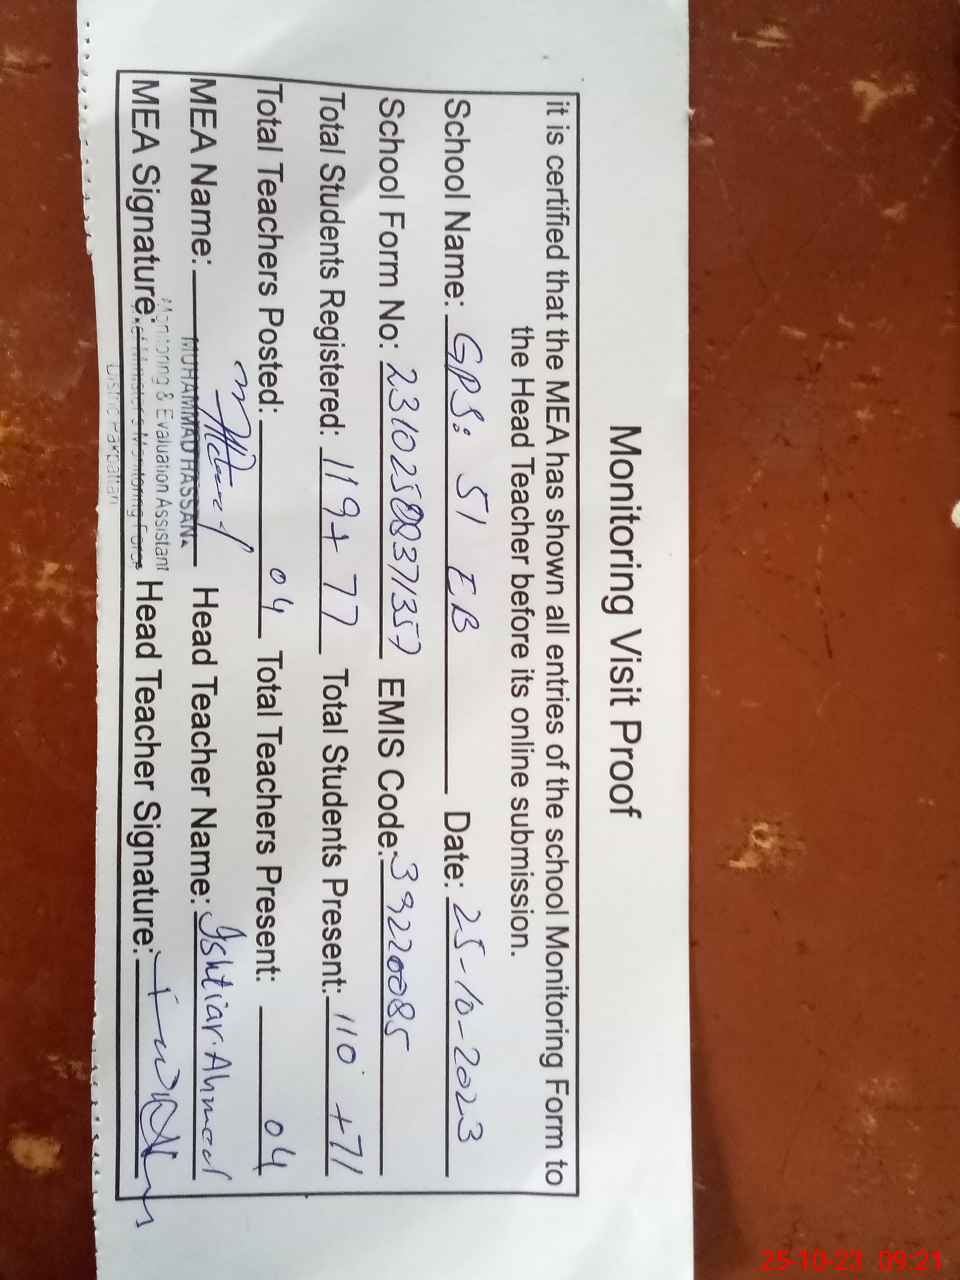 Monitoring Visit Proof
it is certified that the MEA has shown all entries of the school Monitoring Form to
the Head Teacher before its online submission.
School Name: GPS: 51 EB Date: 25-10-2023
School Form No: EMIS Code: 39220085
Total Students Registered: 119+77 Total Students Present: 110 +71
Total Teachers Posted: 04 Total Teachers Present: 04
MEA Name: MUHAMMAD HASSAN Head Teacher Name: Ishtiar Ahmad
Monitoring & Evaluation Assistant
MEA Signature: Chief Minister's Monitoring Force Head Teacher Signature:
District Pakpattan
25-10-23 09:21